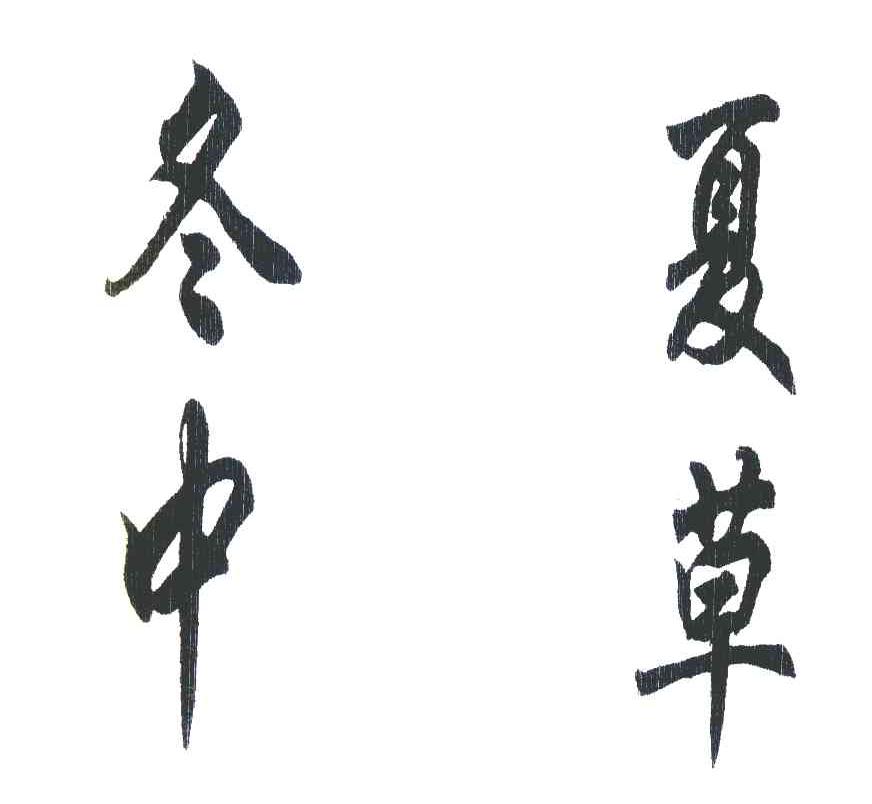 冬中
夏草